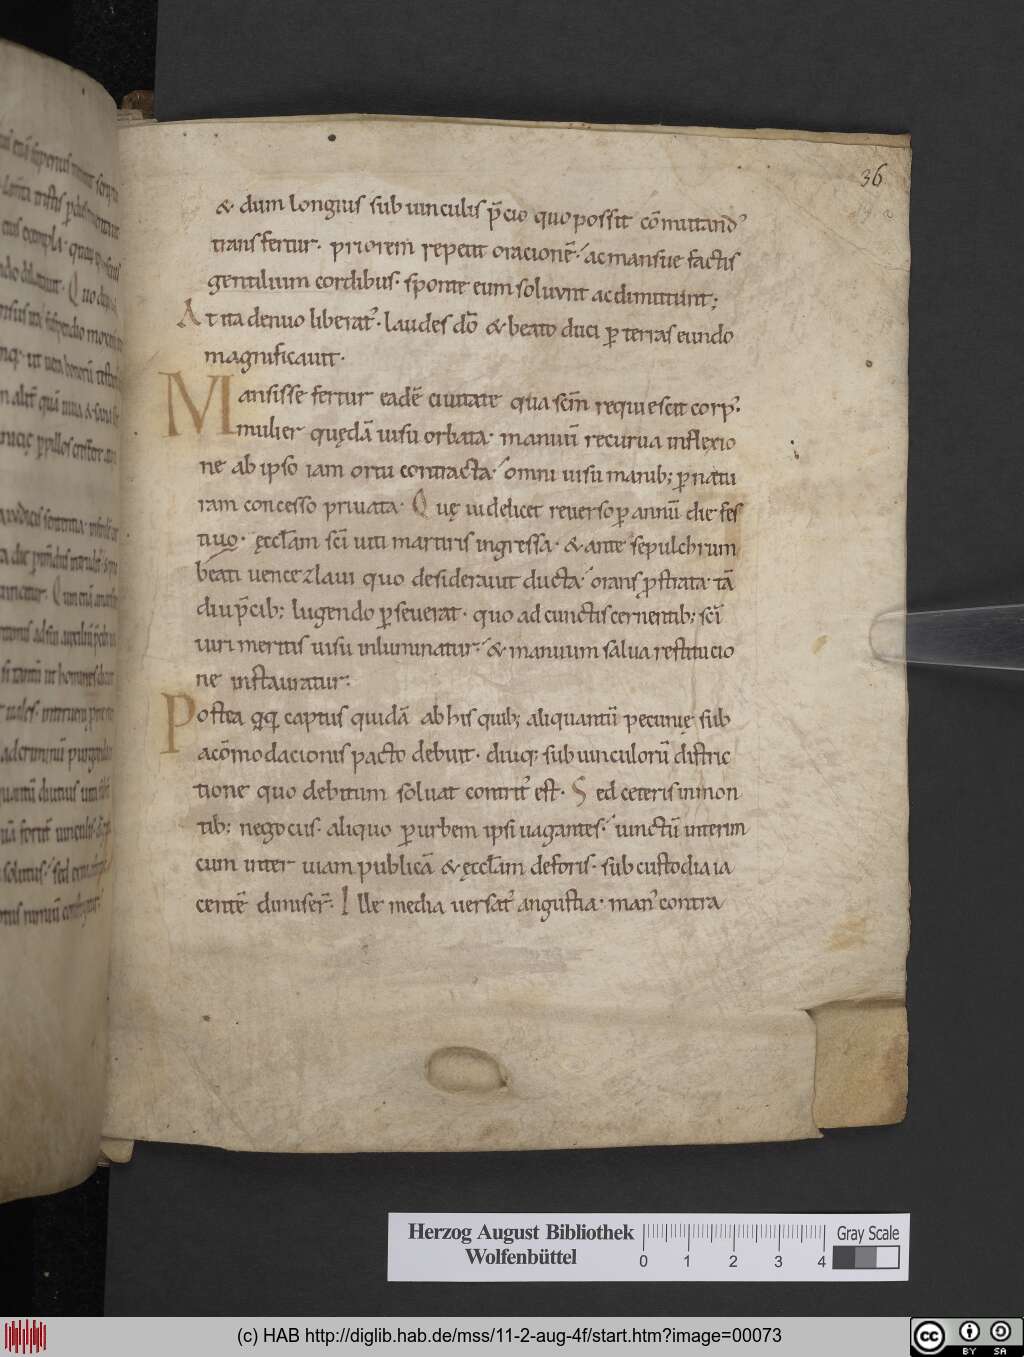 36
& dum longius sub uinculis p̄cio quo possit cōmutandʼ
transfertur· priorem repetit oracionē·ʼ ac mansuefactis
gentilium cordibus· sponte eum soluunt ac dimittunt;
At ita denuo liberatʼ· laudes dō & beato duci ꝑ terras eundo
magnificauit·
Mansisse fertur eadē ciuitate qua scm̄ requiescit corpʼ·
mulier quędā uisu orbata· manuū recurua inflexio
ne ab ipso iam ortu contracta·ʼ omni uisu manib; ꝑ natu
ram concesso priuata· Quę uidelicet reuerso ꝑ annū die fes
tiuo· ęccłam sci uti martiris ingressa· & ante sepulchrum
beati uencezlaui quo desiderauit ducta·ʼ orans ꝓstrata· tā
diu p̄cib; lugendo ꝑseuerat· quo ad cunctis cernentib; sci
uiri meritis uisu inluminatur·ʼ & manuum salua restitucio
ne instauratur·
Postea qq; captus quidā ab his quib; aliquantū pecunię sub
acōmodacionis pacto debuit· diuq; sub uinculorū distric
tione quo debitum soluat contritʼ est· Sed ceteris in mon
tib; negociis· aliquo ꝑ urbem ipsi uagantes·ʼ uinctū interim
cum inter uiam publicā & ęccłam deforis· sub custodia ia
centē dimiser̄· Ille media uersatʼ angustia· manʼ contra
Herzog August Bibliothek
Wolfenbüttel
0 1 2 3 4
Gray Scale
(c) HAB http://diglib.hab.de/mss/11-2-aug-4f/start.htm?image=00073
cc BY SA